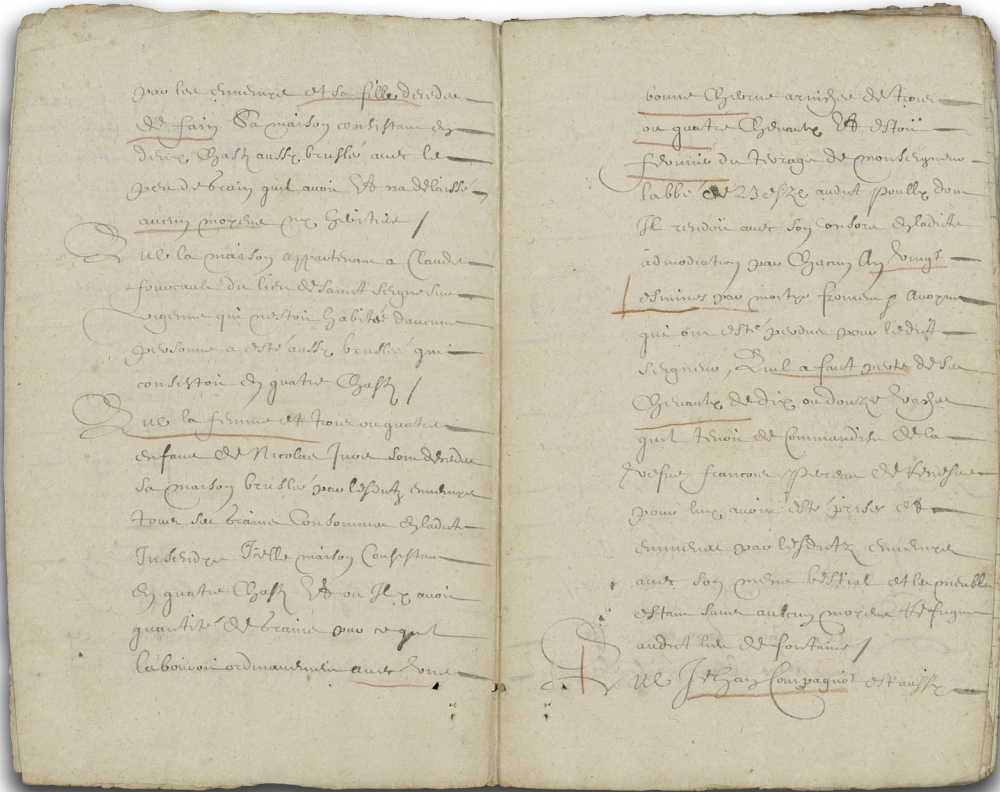 par les ennemys et sa fille decedee
de faim Sa maison consistant en
deux Chasz aussy bruslé avec le
peu de graine quil avoit Et na delaissé
aucun moyens ny heritier /
Que la maison appartenant a Claude
foucault du lieu de Saint Seigne sur
Vigenne qui nestoit habitée daucune
personne a esté aussy bruslée qui
consistoit en quatre Chasz /
Que la femme et trois ou quatre
enfans de Nicolas sont decedez
sa maison bruslée par lesdictz ennemys
tous ses graines Consommez en ladicte
Insendye Icelle maison Consistant
en quatre Chasz Et ou Il y avoit
quantité de graine par ce quil
labouroit ordinairement avec une
bonne Cherue de trois
ou quatre Chevaulx Et estoit
fermier du terrage de monseigneur
labbé de Beze audict poully dont
Il rendoit avec son consort en ladicte
admodiation par Chacun An vingt
esmines par moitye froment Avoyne
qui ont esté perdue pour ledict
seigneur, Quil a fait perte de six
Chevaulx de dix ou douze vaches
quil tenoit de Commandise de la
vefve francois de Renesve
pour luy avoir esté prises et
emmenez par lesdictz ennemys
avec son mesme bestial et les meubles
estant sans aulcun moyens Refugié
audict lieu de fontaine /
Que Jehan Compagnot est aussy